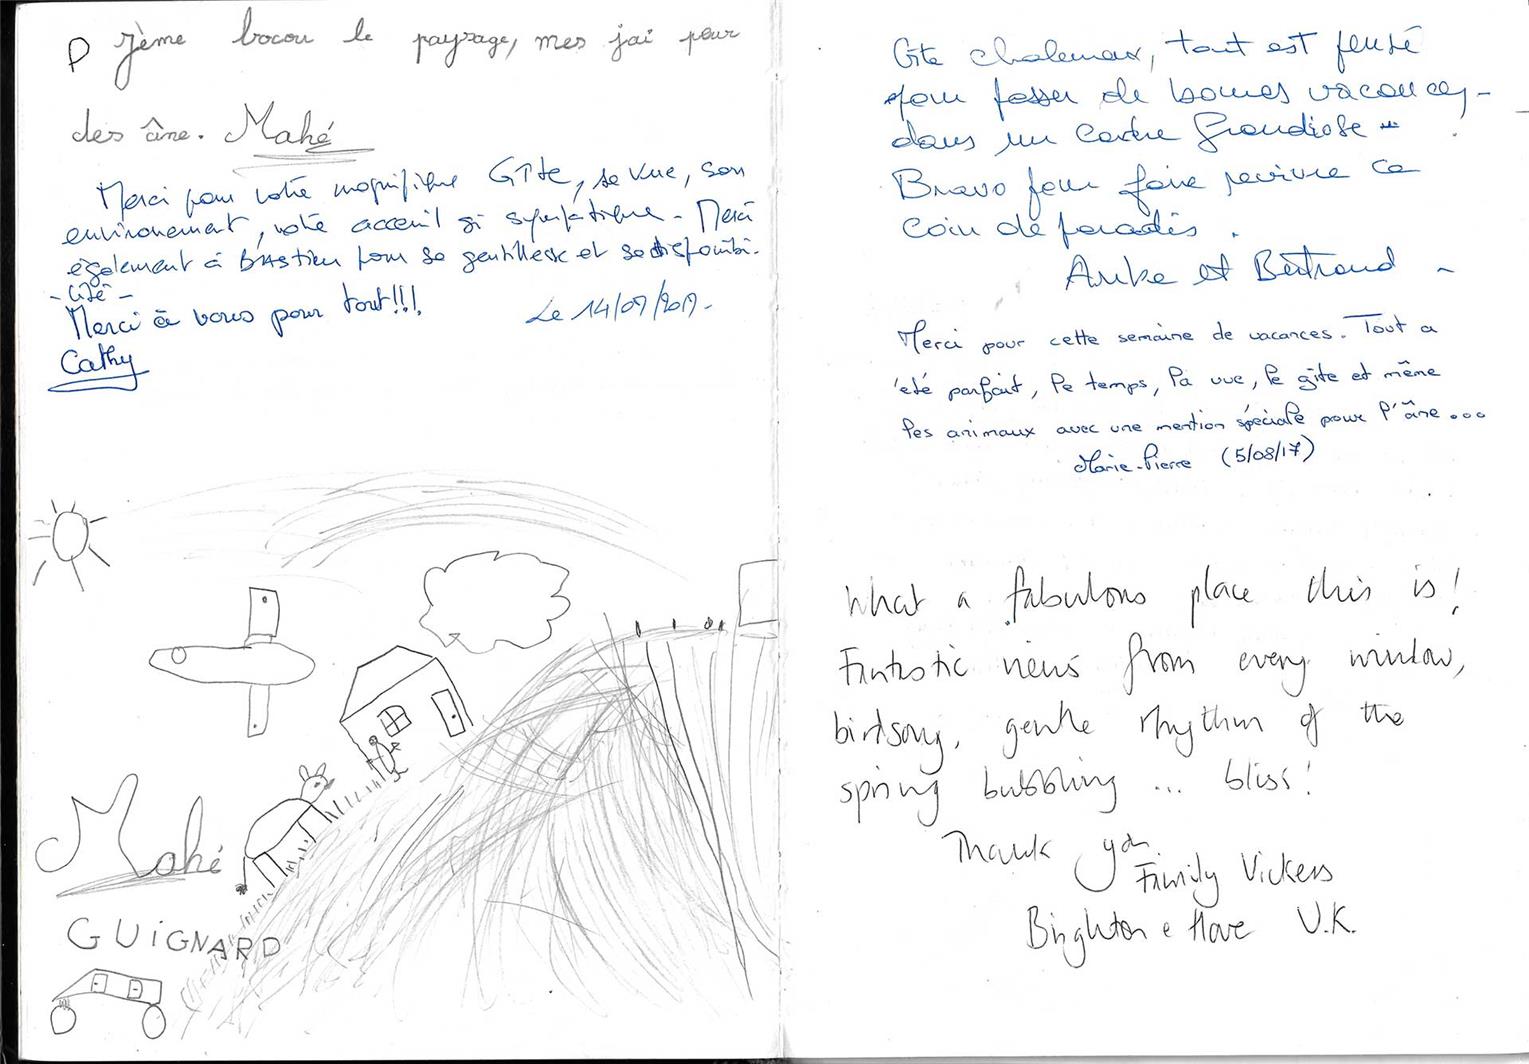 jème bocou le paysage, mes jai peur
des âne. Mahé
Merci pour votre magnifique Gîte, sa vue, son
environement, votre acceuil si sympatique - Merci
également à Bastien pour sa gentillesse et sa disponibi-
- lité -
Merci à vous pour tout!!!
Le 14/07/2017.
Cathy
Mahé
GUiGNARD
Gîte chaleureux, tout est pensé
pour passer de bonnes vacances -
dans un cadre Grandiose -
Bravo pour faire revivre ce
coin de paradis.
et Bertrand
Merci pour cette semaine de vacances. Tout a
été parfait, le temps, la vue, le gîte et même
les animaux avec une mention spéciale pour l'âne...
Marie-Pierre (5/08/17)
What a fabulous place this is!
Fantastic views from every window,
birdsong, gentle rhythm of the
spring bubbling ... bliss!
Thank you
Family Vickers
Brighton & Hove U.K.